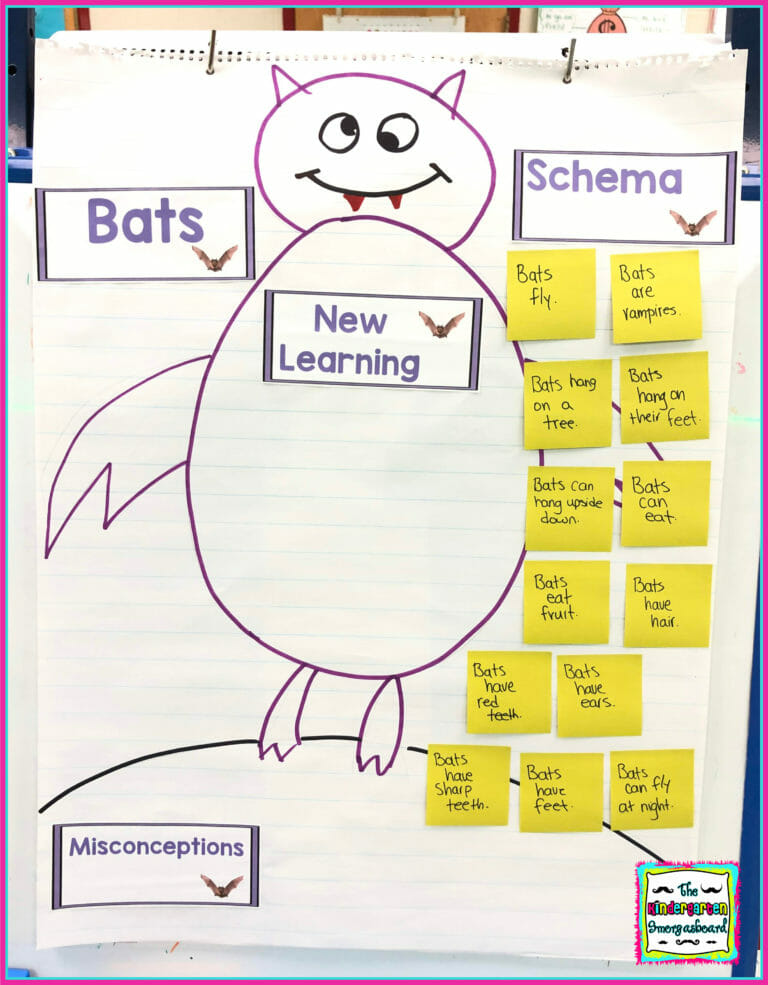 Bats
Schema
New
Learning
Bats
fly.
Bats
are
vampires.
Bats hang
on a
tree.
Bats
hang on
their feet.
Bats can
hang upside
down.
Bats
can
eat.
Bats
eat
fruit.
Bats
have
hair.
Bats
have
red
teeth.
Bats
have
ears.
Bats
have
sharp
teeth.
Bats
have
feet.
Bats
can fly
at night.
Misconceptions
The
Kindergarten
Smorgasboard